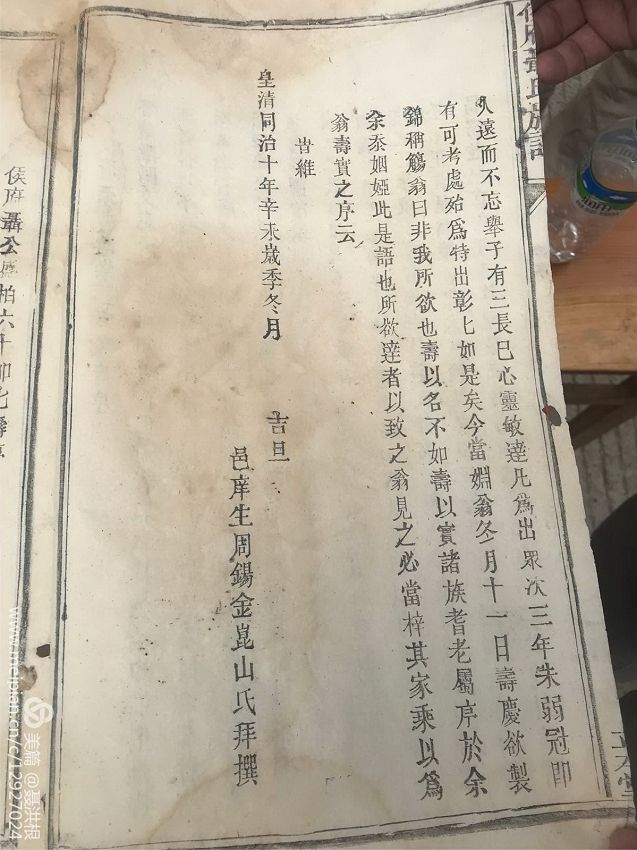 久遠而不忘舉子有三長已心靈敏達凡為出眾次三年未弱冠即
有可考處殆為特出彰匕如是矣今當姻翁冬月十一日壽慶欲製
錦稱觴翁曰非我所欲也壽以名不如壽以實諸族耆老屬序於余
余忝姻婭此是語也所欲達者以致之翁見之必當梓其家乘以為
翁壽實之序云
旹維
皇清同治十年辛未歲季冬月
吉旦
邑庠生周錫金崑山氏拜撰
美篇 @聶洪根
www.meipian.cn/c/12927024